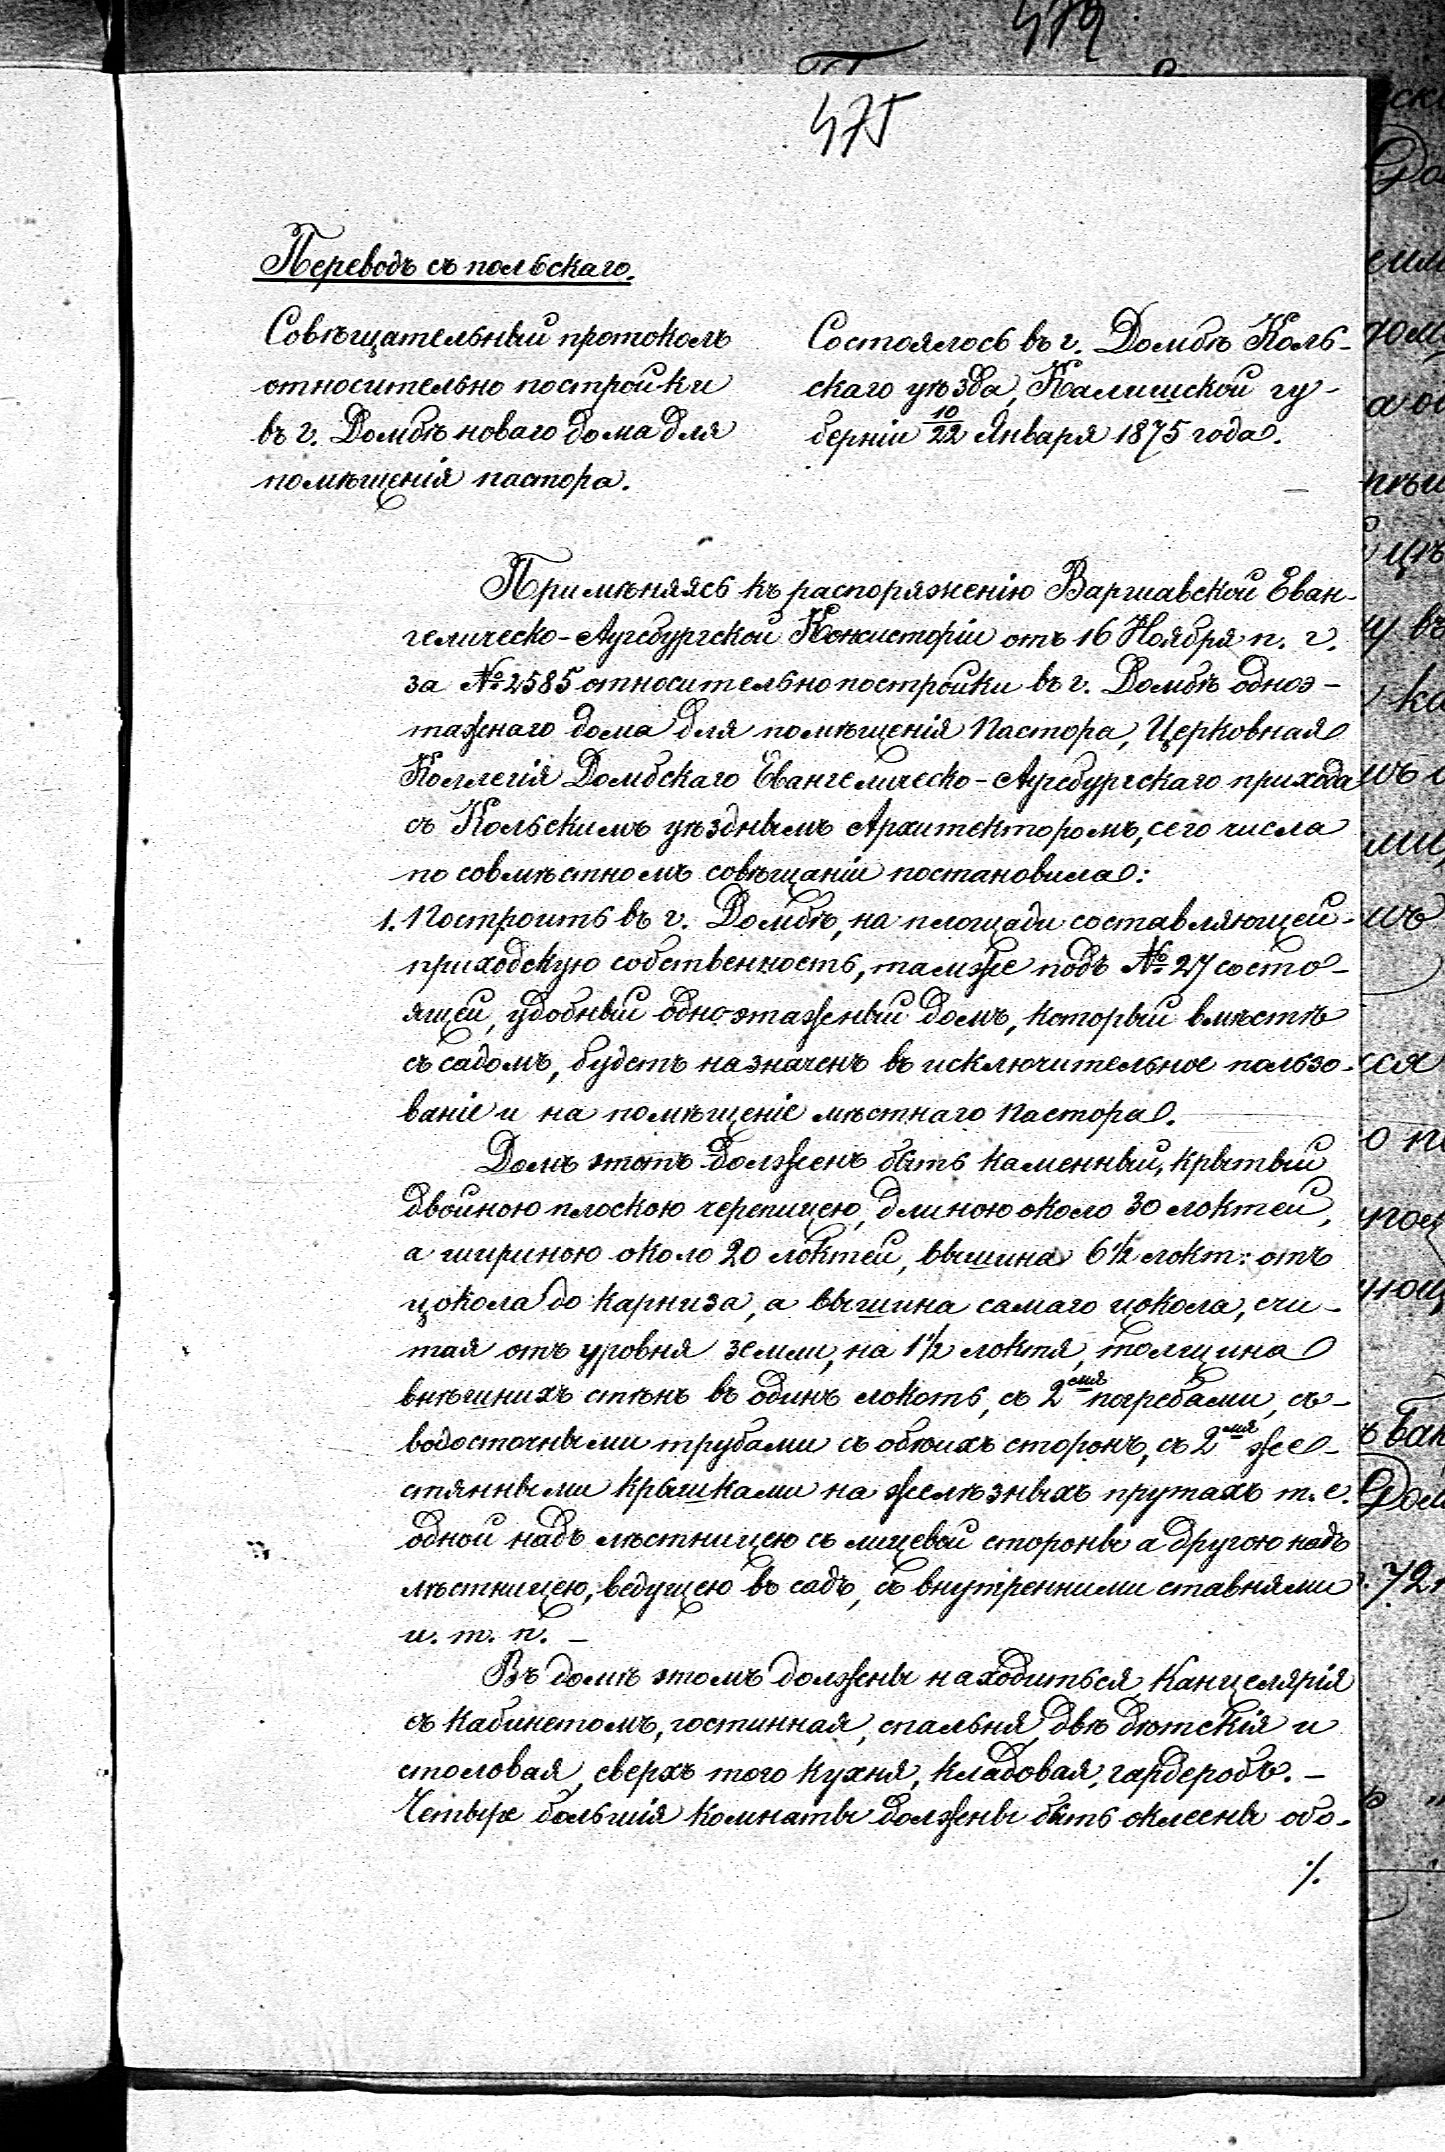 475
Переводъ съ польскаго.
Совѣщательный протоколъ
относительно постройки
въ г. Домбѣ новаго дома для
помѣщенія пастора.
Состоялось въ г. Домбѣ Коль-
скаго уѣзда, Калишской гу-
берніи 10/22 Января 1875 года.
Примѣняясь къ распоряженію Варшавской Еван-
гелическо-Аугсбургской Консисторіи отъ 16 Ноября п. г.
за № 2585 относительно постройки въ г. Домбѣ одноэ-
тажнаго дома для помѣщенія Пастора, Церковная
Коллегія Домбскаго Евангелическо-Аугсбургскаго прихода
съ Кольскимъ уѣзднымъ Архитекторомъ, сего числа
по совмѣстномъ совѣщаніи постановила:
1. Построить въ г. Домбѣ, на площади составляющей
приходскую собственность, тамже подъ № 27 состо-
ящей, удобный одноэтажный домъ, который вмѣстѣ
съ садомъ, будетъ назначенъ въ исключительное пользо-
ваніе и на помѣщеніе мѣстнаго Пастора.
Домъ этотъ долженъ быть каменный, крытый
двойною плоскою черепицею, длиною около 30 локтей,
а шириною около 20 локтей, вышина 6½ локт: отъ
цокола до карниза, а вышина самаго цокола, счи-
тая отъ уровня земли, на 1½ локтя, толщина
внѣшнихъ стѣнъ въ одинъ локоть, съ 2мя погребами, съ
водосточными трубами съ обоихъ сторонъ, съ 2мя же-
стянными крышками на желѣзныхъ прутахъ т. е.
одной надъ лѣстницею съ лицевой стороны а другою надъ
лѣстницею, ведущею въ садъ, съ внутренними ставнями
и. т. п. –
Въ домѣ этомъ должны находиться, Канцелярія
съ кабинетомъ, гостинная, спальня, двѣ дѣтскія и
столовая, сверхъ того кухня, кладовая, гардеробъ. –
Четыре большія комнаты должны быть оклеены обо-
./.